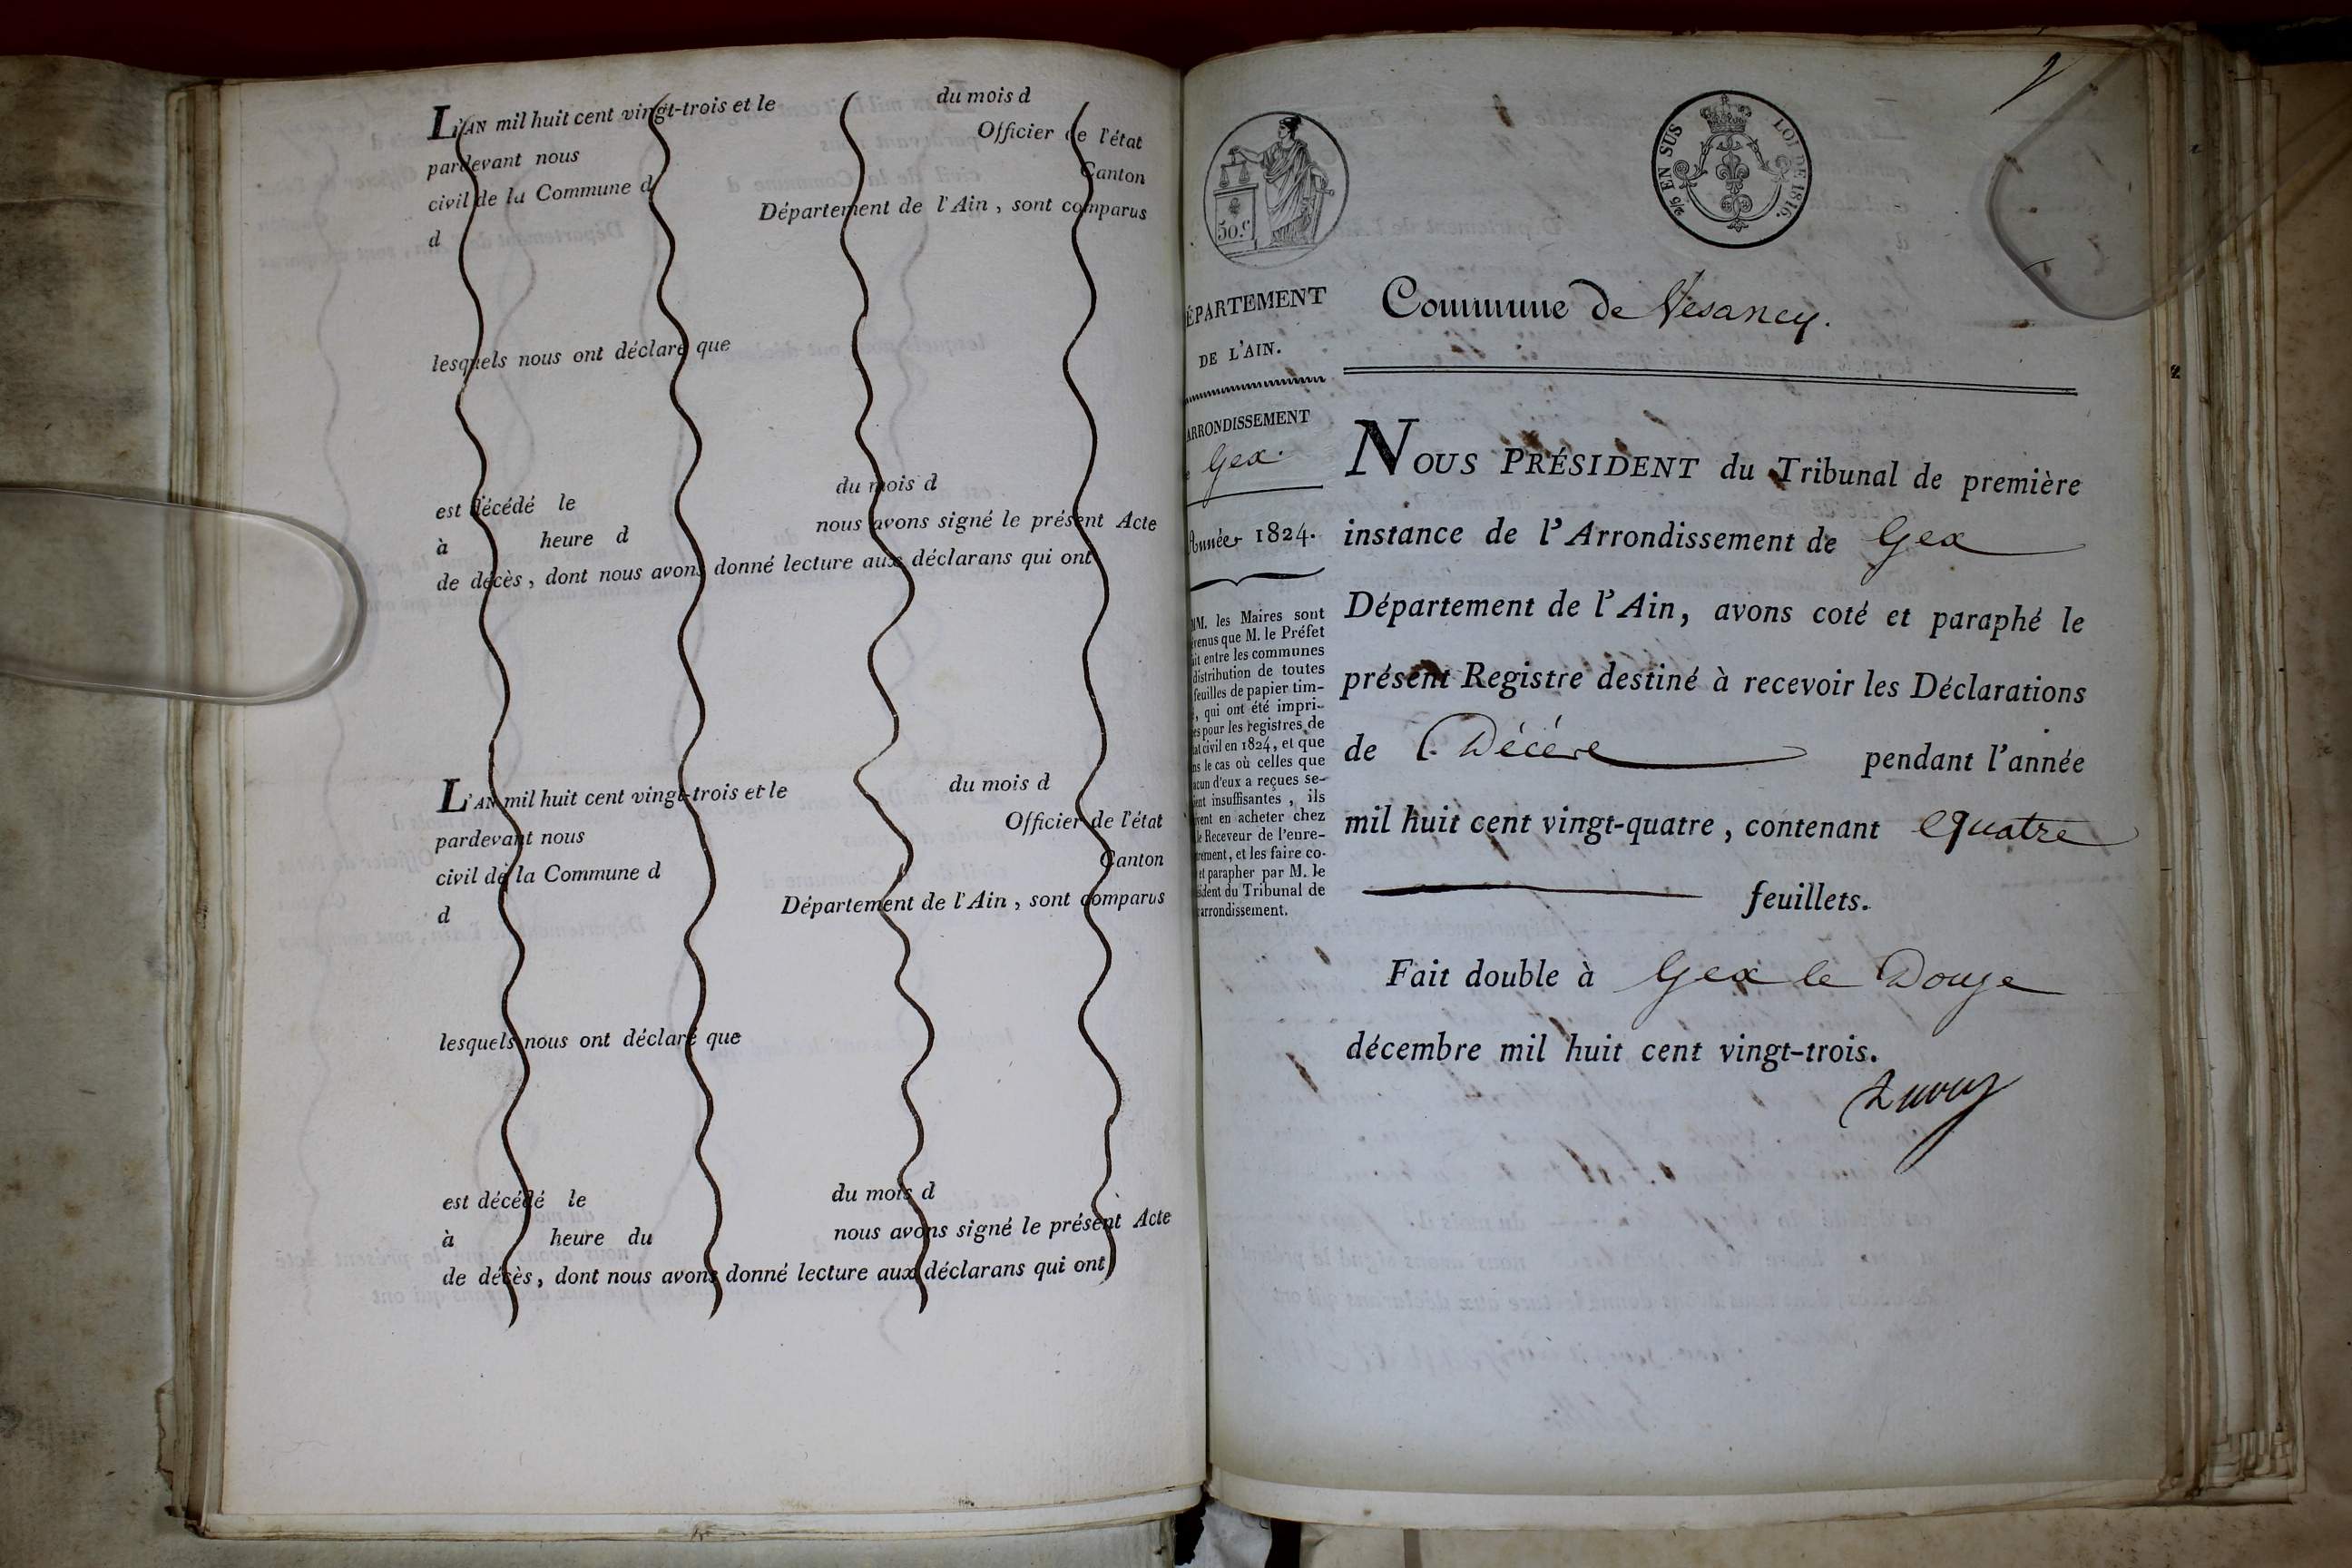 L'AN mil huit cent vingt-trois et le du mois d
pardevant nous Officier de l'état
civil de la Commune d Canton
d Département de l'Ain, sont comparus
lesquels nous ont déclaré que
est décédé le du mois d
à heure d nous avons signé le présent Acte
de décès, dont nous avons donné lecture aux déclarans qui ont
L'AN mil huit cent vingt-trois et le du mois d
pardevant nous Officier de l'état
civil de la Commune d Canton
d Département de l'Ain, sont comparus
lesquels nous ont déclaré que
est décédé le du mois d
à heure du nous avons signé le présent Acte
de décès, dont nous avons donné lecture aux déclarans qui ont
50.c
2/5 EN SUS
LOI DE 1816.
ÉPARTEMENT
DE L'AIN.
ARRONDISSEMENT
Gex.
Année 1824.
MM. les Maires sont
venus que M. le Préfet
it entre les communes
distribution de toutes
feuilles de papier tim-
, qui ont été impri-
es pour les registres de
at civil en 1824, et que
ns le cas où celles que
acun d'eux a reçues se-
ient insuffisantes, ils
vent en acheter chez
le Receveur de l'enre-
trement, et les faire co-
et parapher par M. le
sident du Tribunal de
arrondissement.
Commune de Vesancy.
NOUS PRÉSIDENT du Tribunal de première
instance de l'Arrondissement de Gex
Département de l'Ain, avons coté et paraphé le
présent Registre destiné à recevoir les Déclarations
de Décés pendant l'année
mil huit cent vingt-quatre, contenant quatre
feuillets.
Fait double à Gex le Douze
décembre mil huit cent vingt-trois.